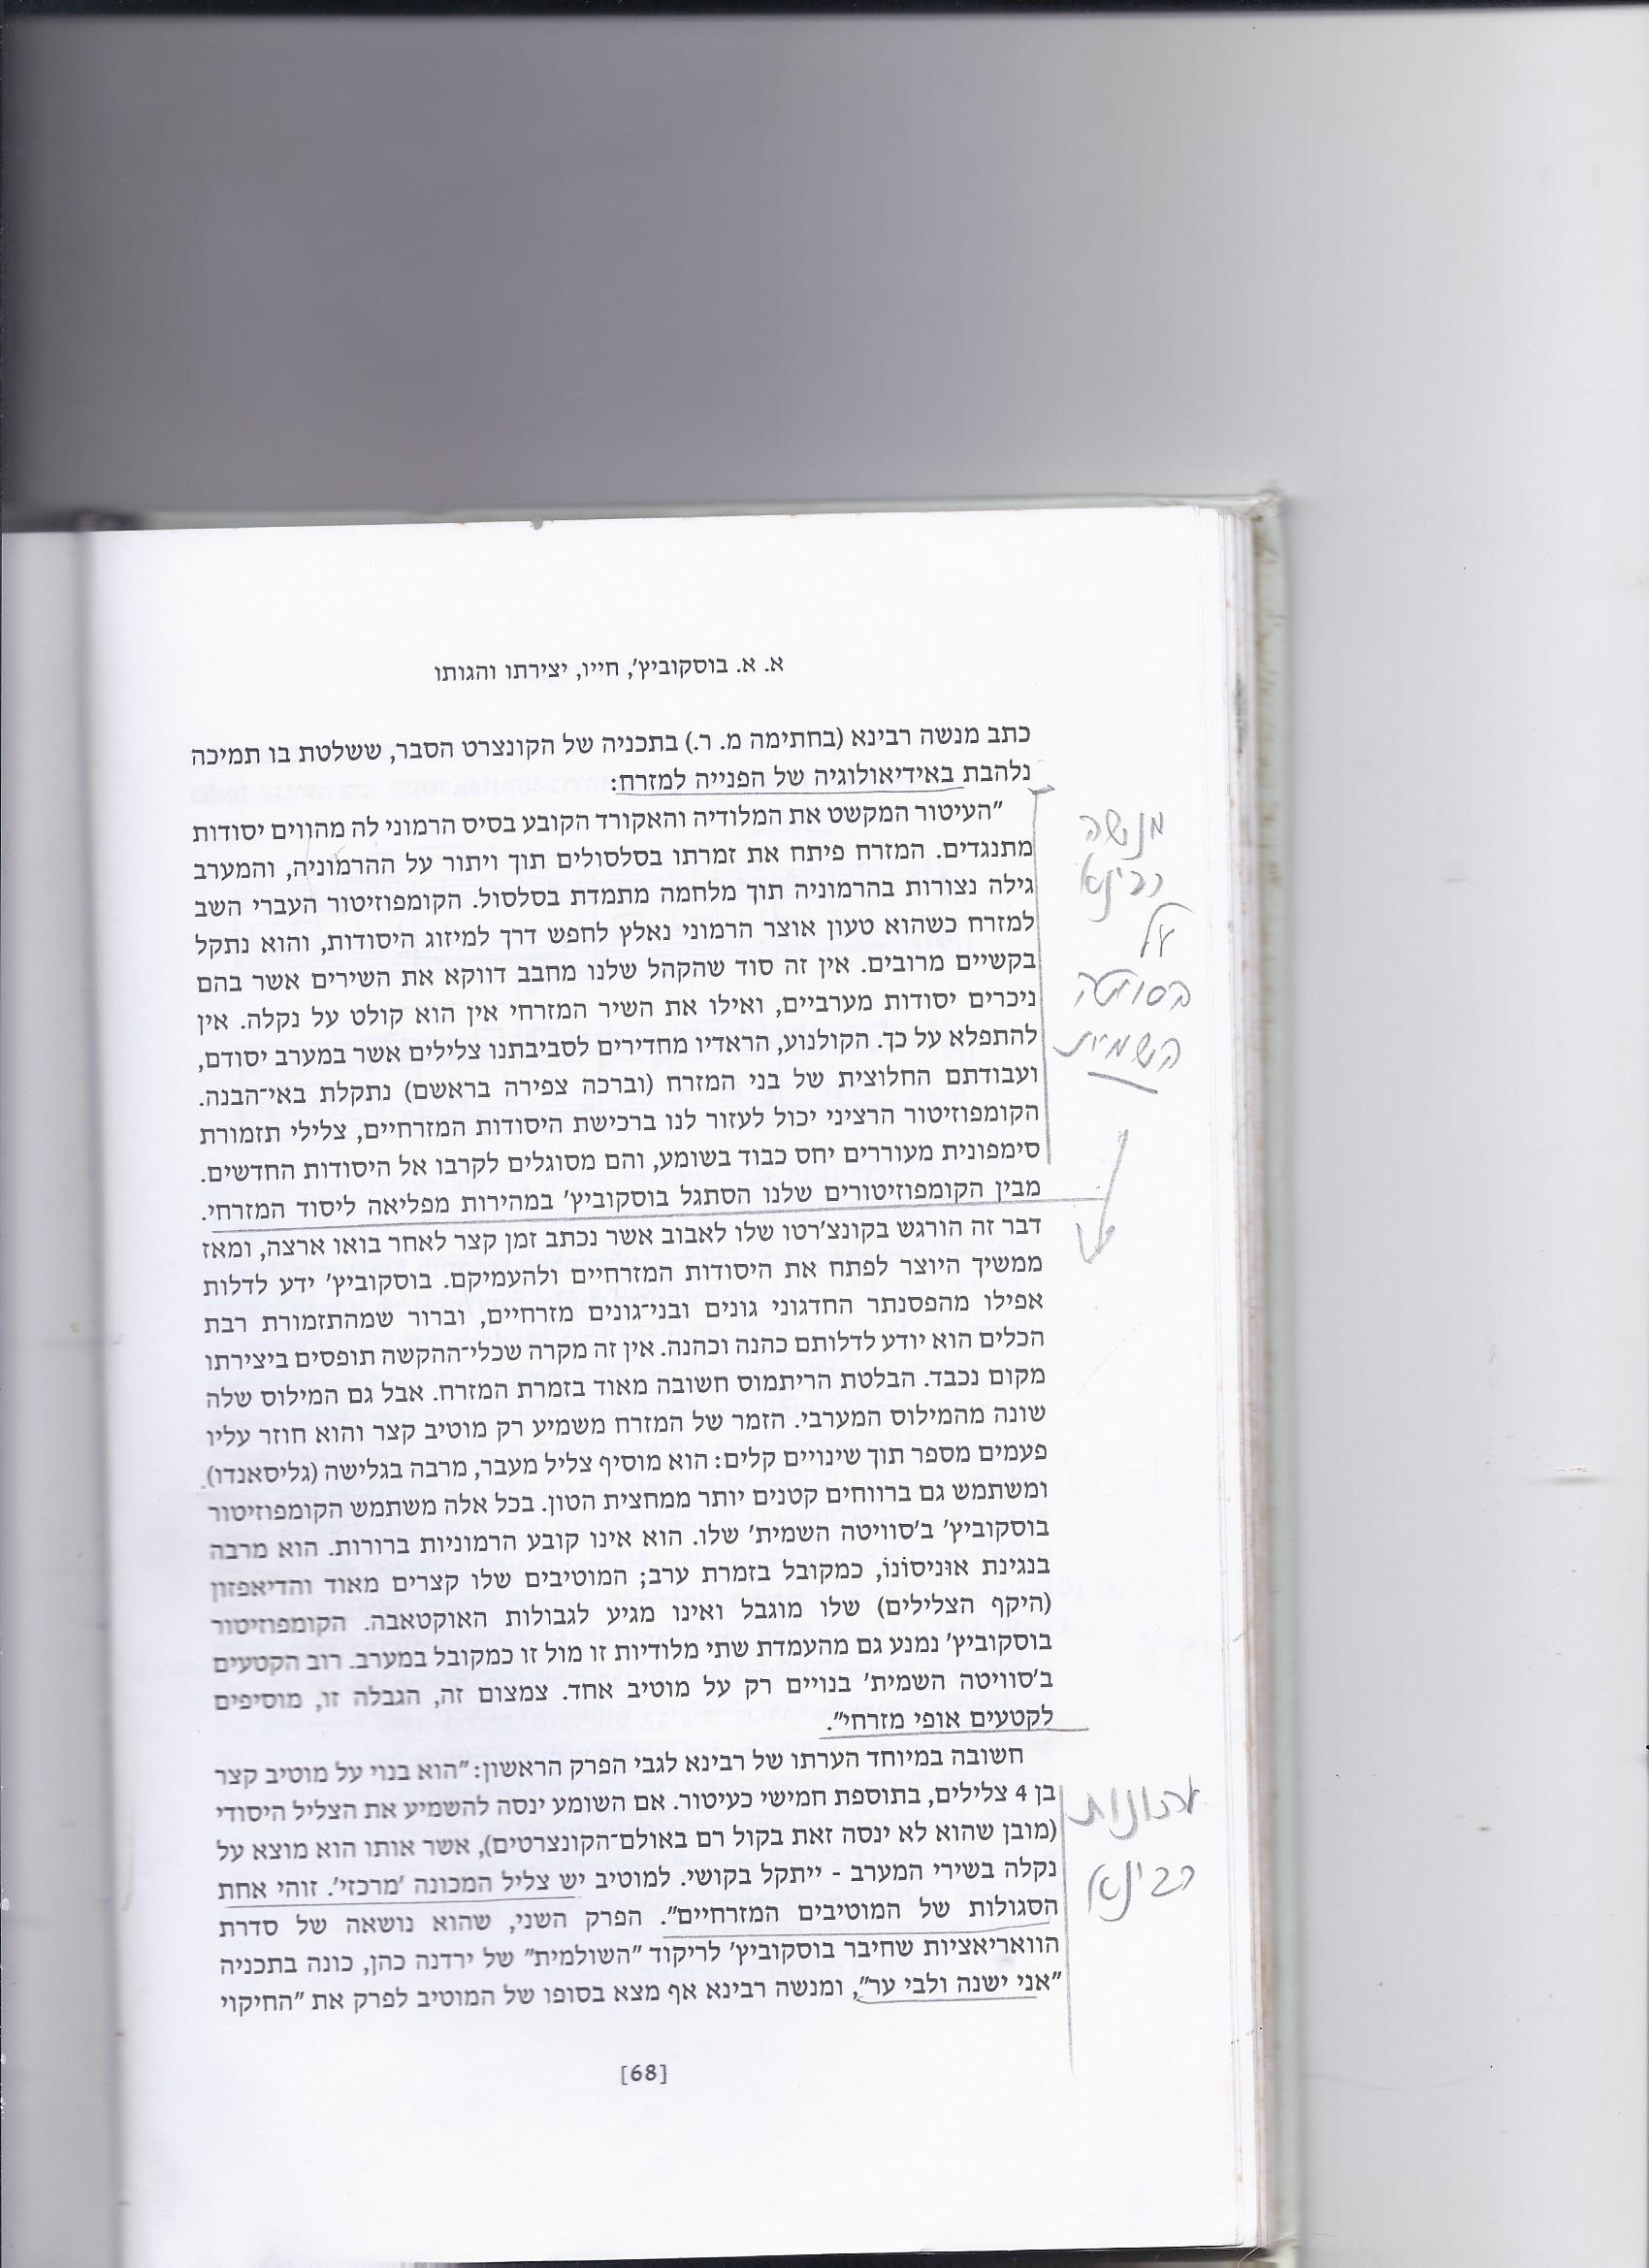 א. א. בוסקוביץ', חייו, יצירתו והגותו
כתב מנשה רבינא (בחתימה מ. ר.) בתכניה של הקונצרט הסבר, ששלטת בו תמיכה
נלהבת באידיאולוגיה של הפנייה למזרח:
"העיטור המקשט את המלודיה והאקורד הקובע בסיס הרמוני לה מהווים יסודות
מתנגדים. המזרח פיתח את זמרתו בסלסולים תוך ויתור על ההרמוניה, והמערב
גילה נצורות בהרמוניה תוך מלחמה מתמדת בסלסול. הקומפוזיטור העברי השב
למזרח כשהוא טעון אוצר הרמוני נאלץ לחפש דרך למיזוג היסודות, והוא נתקל
בקשיים מרובים. אין זה סוד שהקהל שלנו מחבב דווקא את השירים אשר בהם
ניכרים יסודות מערביים, ואילו את השיר המזרחי אין הוא קולט על נקלה. אין
להתפלא על כך. הקולנוע, הראדיו מחדירים לסביבתנו צלילים אשר במערב יסודם,
ועבודתם החלוצית של בני המזרח (וברכה צפירה בראשם) נתקלת באי־הבנה.
הקומפוזיטור הרציני יכול לעזור לנו ברכישת היסודות המזרחיים, צלילי תזמורת
סימפונית מעוררים יחס כבוד בשומע, והם מסוגלים לקרבו אל היסודות החדשים.
מבין הקומפוזיטורים שלנו הסתגל בוסקוביץ' במהירות מפליאה ליסוד המזרחי.
דבר זה הורגש בקונצ'רטו שלו לאבוב אשר נכתב זמן קצר לאחר בואו ארצה, ומאז
ממשיך היוצר לפתח את היסודות המזרחיים ולהעמיקם. בוסקוביץ' ידע לדלות
אפילו מהפסנתר החדגוני גונים ובני־גונים מזרחיים, וברור שמהתזמורת רבת
הכלים הוא יודע לדלותם כהנה וכהנה. אין זה מקרה שכלי־ההקשה תופסים ביצירתו
מקום נכבד. הבלטת הריתמוס חשובה מאוד בזמרת המזרח. אבל גם המילוס שלה
שונה מהמילוס המערבי. הזמר של המזרח משמיע רק מוטיב קצר והוא חוזר עליו
פעמים מספר תוך שינויים קלים: הוא מוסיף צליל מעבר, מרבה בגלישה (גליסאנדו)
ומשתמש גם ברווחים קטנים יותר ממחצית הטון. בכל אלה משתמש הקומפוזיטור
בוסקוביץ' ב'סוויטה השמית' שלו. הוא אינו קובע הרמוניות ברורות. הוא מרבה
בנגינת אוּניסוֹנוֹ, כמקובל בזמרת ערב; המוטיבים שלו קצרים מאוד והדיאפזון
(היקף הצלילים) שלו מוגבל ואינו מגיע לגבולות האוקטאבה. הקומפוזיטור
בוסקוביץ' נמנע גם מהעמדת שתי מלודיות זו מול זו כמקובל במערב. רוב הקטעים
ב'סוויטה השמית' בנויים רק על מוטיב אחד. צמצום זה, הגבלה זו, מוסיפים
לקטעים אופי מזרחי".
חשובה במיוחד הערתו של רבינא לגבי הפרק הראשון: "הוא בנוי על מוטיב קצר
בן 4 צלילים, בתוספת חמישי כעיטור. אם השומע ינסה להשמיע את הצליל היסודי
(מובן שהוא לא ינסה זאת בקול רם באולם־הקונצרטים), אשר אותו הוא מוצא על
נקלה בשירי המערב - ייתקל בקושי. למוטיב יש צליל המכונה 'מרכזי'. זוהי אחת
הסגולות של המוטיבים המזרחיים". הפרק השני, שהוא נושאה של סדרת
הוואריאציות שחיבר בוסקוביץ' לריקוד "השולמית" של ירדנה כהן, כונה בתכניה
"אני ישנה ולבי ער", ומנשה רבינא אף מצא בסופו של המוטיב לפרק את "החיקוי
[68]
מנשה
רבינא
על
הסויטה
השמית
רבינא